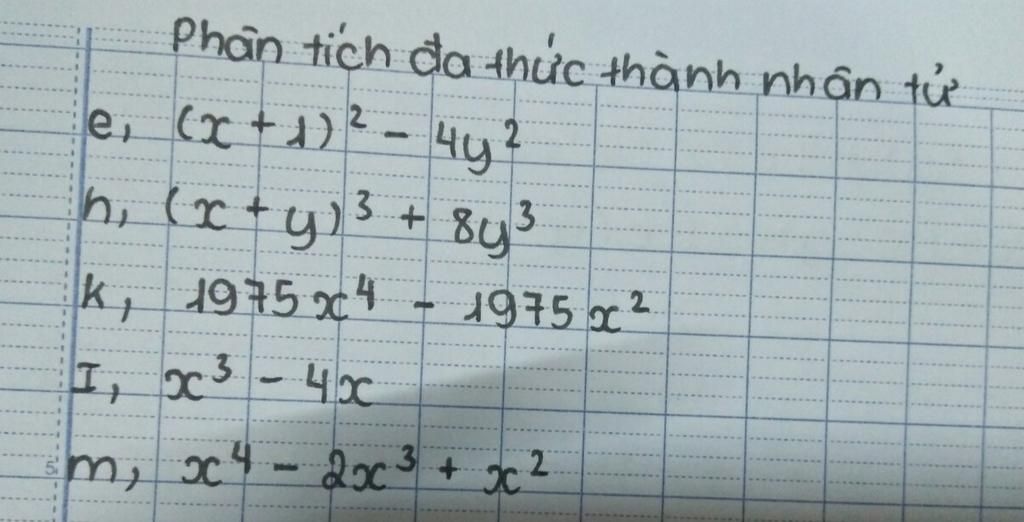 Phân tích đa thức thành nhân tử
e, (x + 1)² - 4y²
h, (x + y)³ + 8y³
k, 1975x⁴ - 1975x²
I, x³ - 4x
m, x⁴ - 2x³ + x²